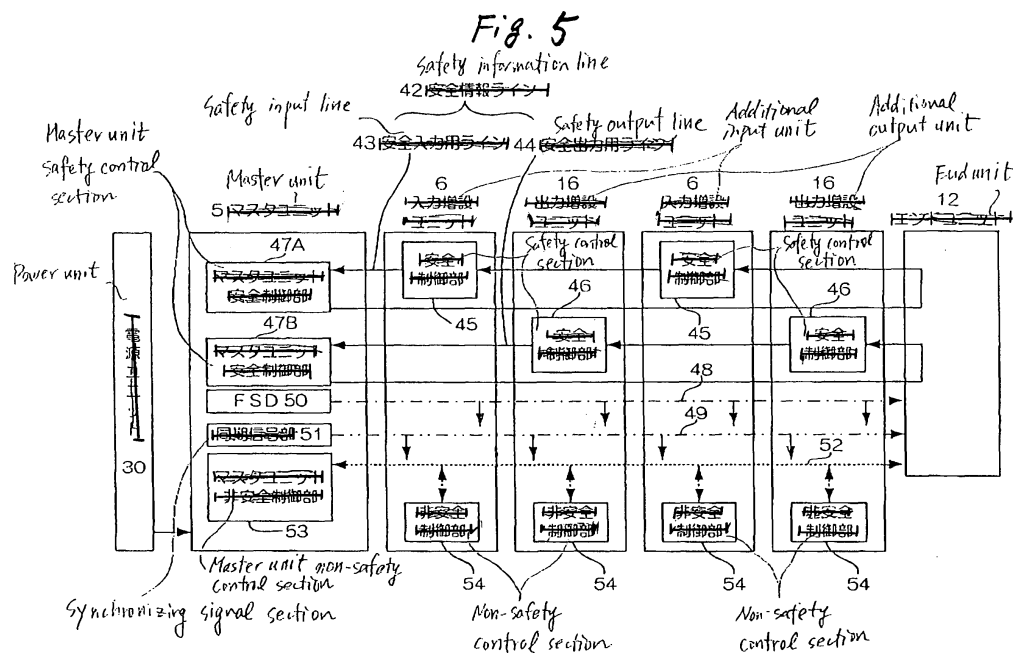 Fig. 5
Safety information line
42 安全情報ライン
Safety input line
43 安全入力用ライン
Safety output line
44 安全出力用ライン
Additional
input unit
Additional
output unit
Master unit
safety control
section
Master unit
5 マスタユニット
6
入力増設
ユニット
16
出力増設
ユニット
6
入力増設
ユニット
16
出力増設
ユニット
End unit
12
エンドユニット
Power unit
電源ユニット
30
47A
マスタユニット
安全制御部
47B
マスタユニット
安全制御部
FSD 50
同期信号部 51
マスタユニット
非安全制御部
53
安全
制御部
45
Safety control
section
46
安全
制御部
安全
制御部
45
Safety control
section
46
安全
制御部
48
49
52
非安全
制御部
54
非安全
制御部
54
非安全
制御部
54
非安全
制御部
54
Master unit non-safety
control section
Synchronizing signal section
Non-safety
control section
Non-safety
control section